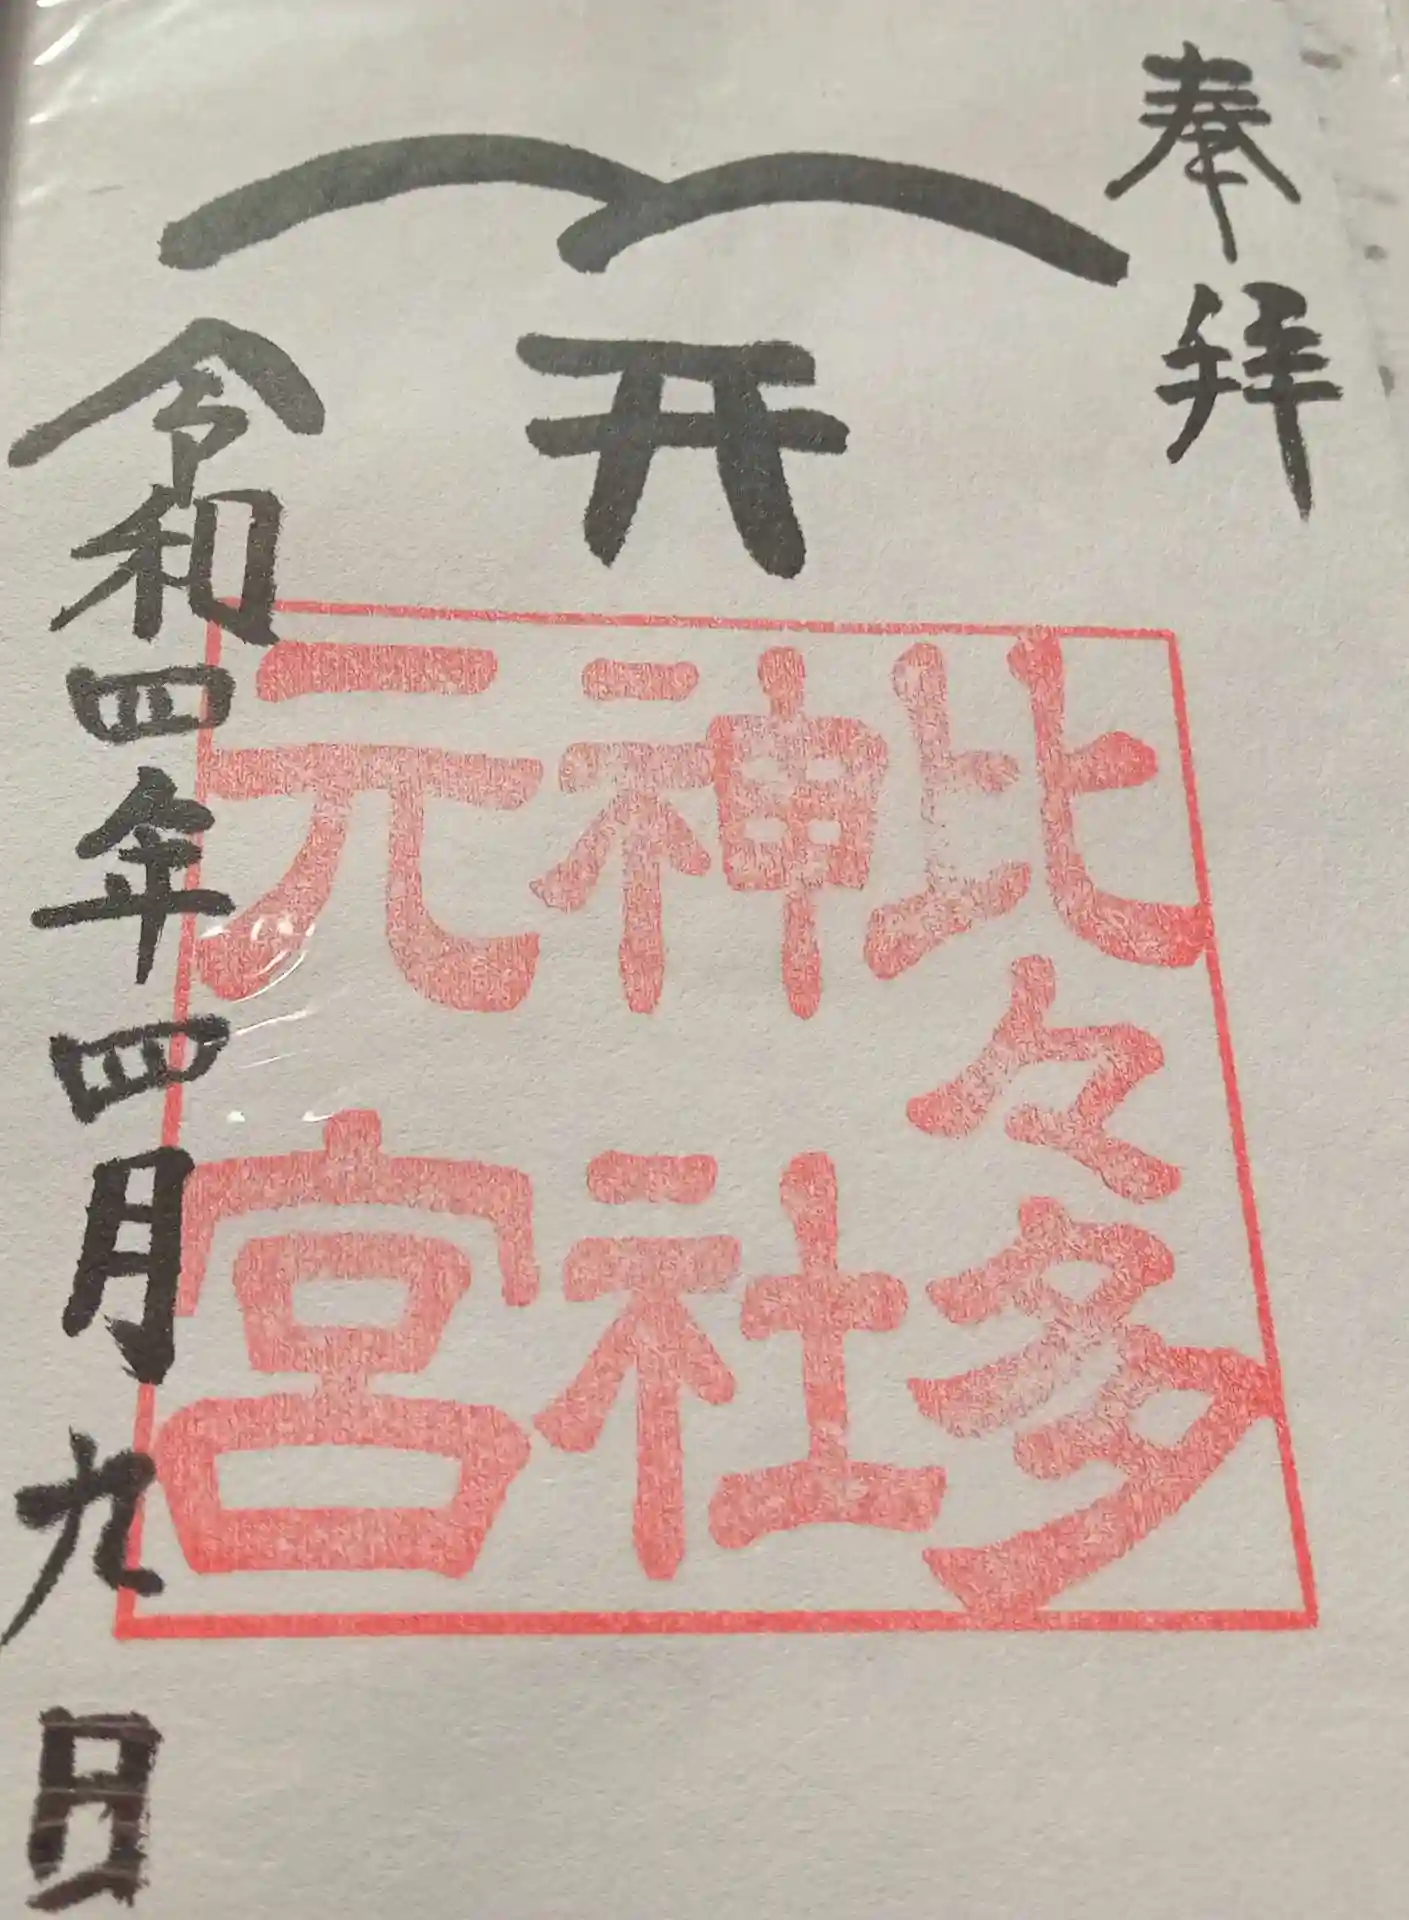 奉拝
比々多
神社
元宮
令和四年四月九日